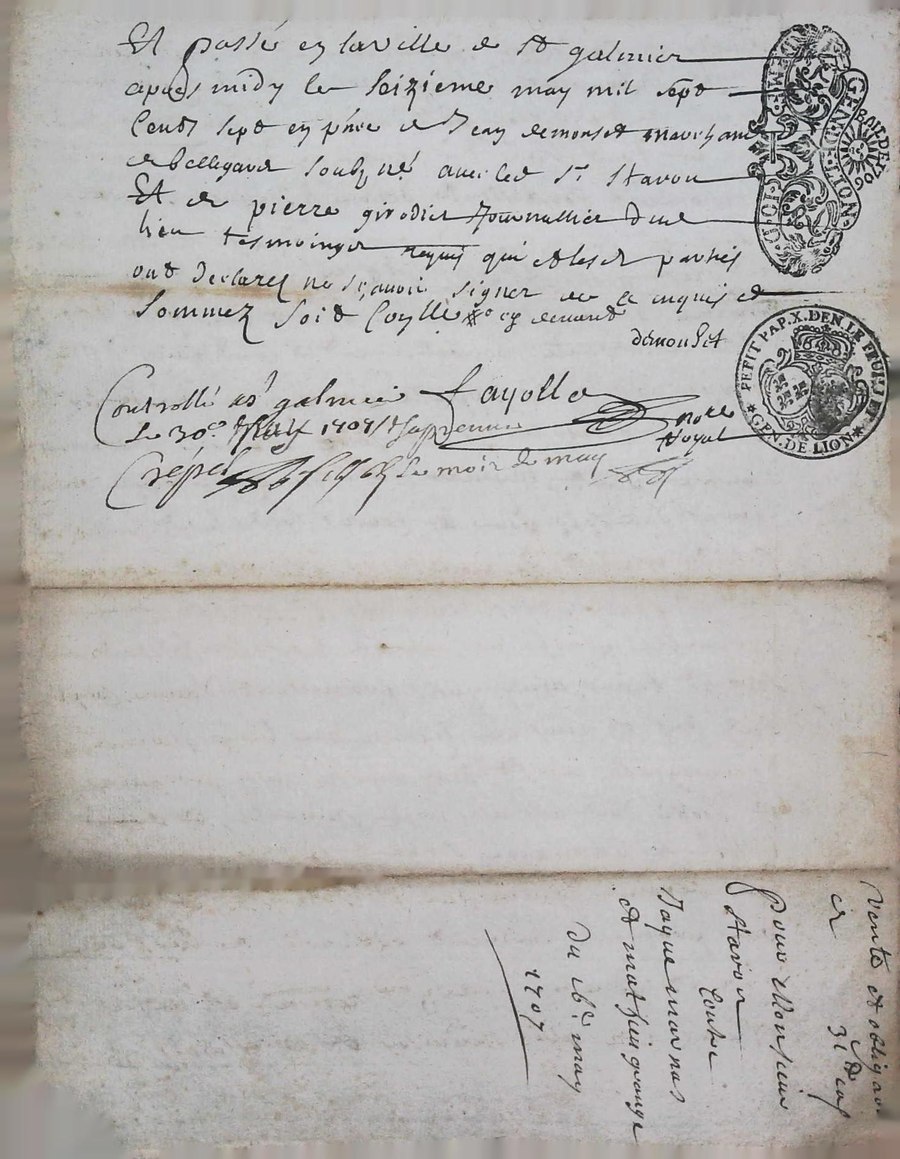 Et passé en la ville de St galmier
apres midy le seizieme may mil sept
Cents sept en pnce de Jean demonset marchand
de bellegarde soubzné avec led sr. stavon
Et de pierre girodier Journallier dud
lieu tesmoingz requis qui et lesd parties
ont declarez ne sçavoir signer de ce enquis et
sommez soit
demonset
Controllé a St galmier fayolle
Le 30e May 1707
nore
Royal
le mois de may
BAIL DE 1706
GEN. D. LION
PETIT PAP. X. DEN. LE FEUILLET
GEN. DE LION
vente et obligaon
de
pour Monsieur
stavon
Contre
Jaque marnas
et mathieu grange
du 16e may
1707